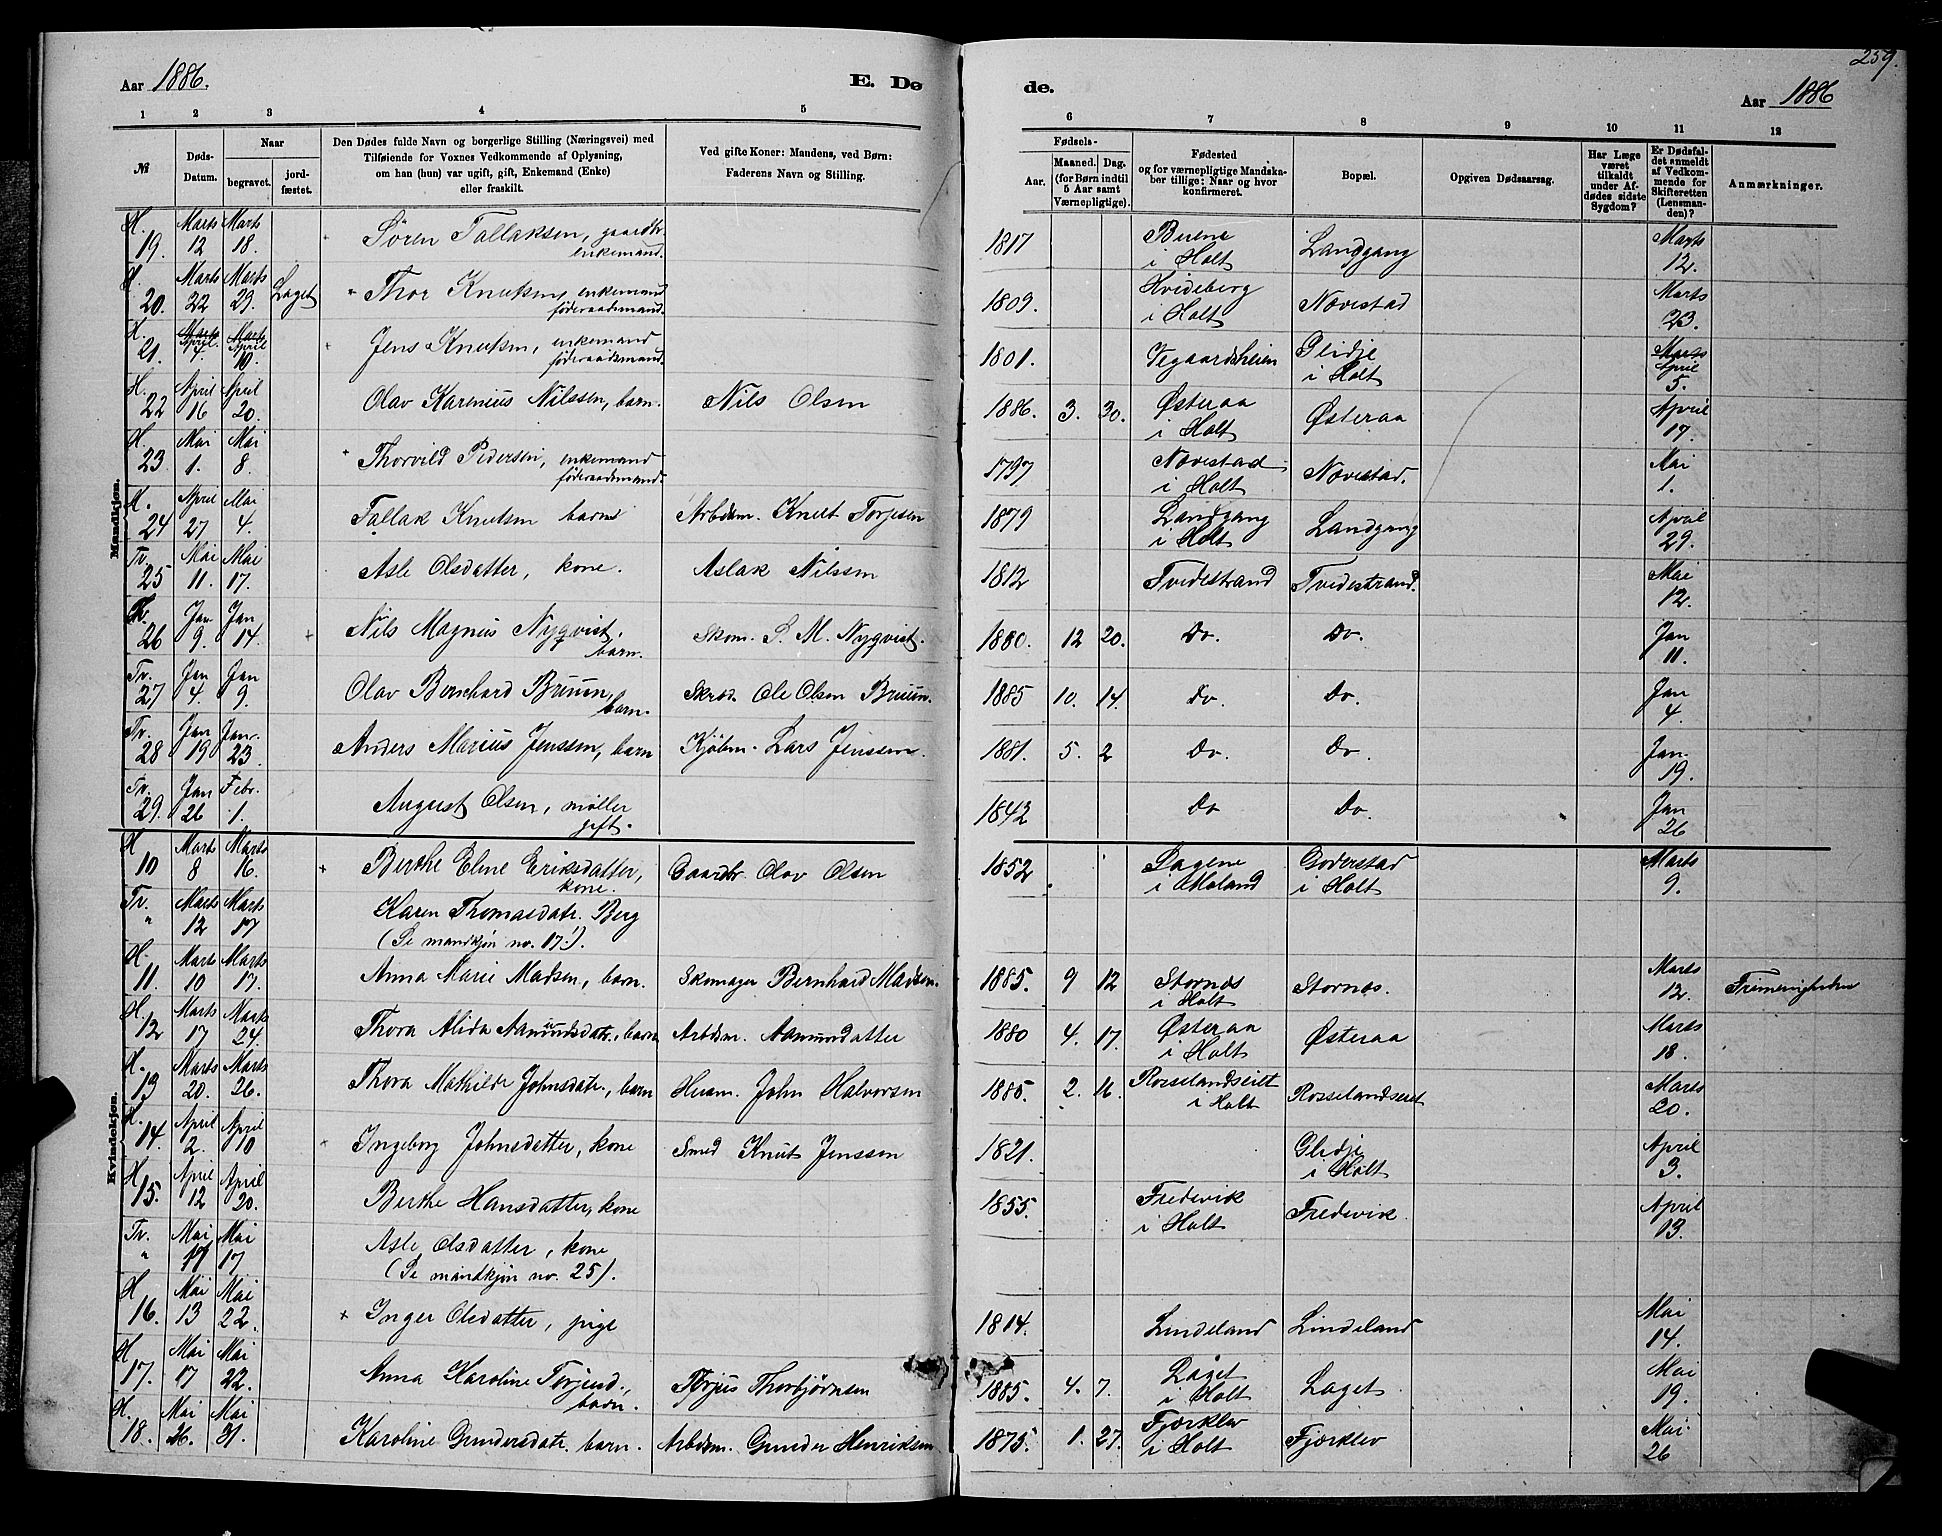 Aar 1886.
E. Dø
1 2 3 4 5
№
Døds-
Datum.
Naar
begravet.
jord-
fæstet.
Den Dødes fulde Navn og borgerlige Stilling (Næringsvei) med
Tilføiende for Voxnes Vedkommende af Oplysning,
om han (hun) var ugift, gift, Enkemand (Enke)
eller fraskilt.
Ved gifte Koner: Mandens, ved Børn:
Faderens Navn og Stilling.
Mandkjøn.
H. 19. Marts 12 Marts 18. Søren Tallaksen, gaardbr. enkemand.
H. 20. Marts 22 Marts 29. Laget Thor Knutsen, enkemand føderaadsmand.
H. 21. April 4. April 10. Jens Knutsen, enkemand føderaadsmand.
H. 22 April 16 April 20. Olav Karenius Nilssen, barn. Nils Olsen
H. 23. Mai 1. Mai 8. Thorvild Pedersen, enkemand føderaadsmand.
H. 24 April 27 Mai 4. Tallak Knutsen barn Arbdsm. Knut Torjesen
Tv. 25 Mai 11. Mai 17. Asle Olsdatter, kone. Aslak Nilssen
Tv. 26 Jan 9. Jan 14. Nils Magnus Nyqvist. barn. Skom. S. M. Nyqvist.
Tv. 27 Jan 4. Jan 9. Olav Bernhard Bruun, barn. Skræd. Ole Olsen Bruun.
Tv. 28 Jan 19 Jan. 23. Anders Marius Jenssen, barn Kjøbm. Lars Jenssen.
Tv. 29. Jan 26 Febr. 1. August Olsen, møller gift.
Kvindekjøn.
H 10 Marts 8 Marts 16. Berthe Eline Eriksdatter, kone. Gaardbr. Olav Olsen
Tv. " Marts 12 Marts 17 Karen Thomasdatr. Berg
(Se mandkjøn no. 17!).
H. 11. Marts 10 Marts 17. Anna Marie Madsen, barn. Skomager Bernhard Madsen.
H. 12 Marts 17 Marts 24. Thora Alida Aamundsdatr., barn Arbdsm. Aamundatter
H. 13 Marts 20. Marts 26. Thora Mathilde Johnsdatr., barn Husm. John Halvorsen
H. 14. April 2. April 10 Ingeborg Johnsdatter, kone Smed Knut Jenssen
H 15. April 12 April 20. Berthe Hansdatter, kone
Tv. " Mai 11 Mai 17 Asle Olsdatter, kone
(Se mandkjøn no. 25).
H 16. Mai 13 Mai 22. Inger Olsdatter, pige
H 17. Mai 17 Mai 22. Anna Karoline Torjusd., barn. Torjus Thorbjørnsen
H. 18. Mai 26. Mai 31. Karoline Gundersdatr. barn. Arbdsm. Gunder Henriksen
de.
Aar 1886
259.
6 7 8 9 10 11 12
Fødsels-
Aar.
Maaned. Dag.
(for Børn indtil
5 Aar samt
Værnepligtige).
Fødested
og for værnepligtige Mandska-
ber tillige: Naar og hvor
konfirmeret.
Bopæl.
Opgiven Dødsaarsag.
Har Læge
været
tilkaldt
under Af-
dødes sidste
Sygdom?
Er Dødsfal-
det anmeldt
af Vedkom-
mende for
Skifteretten
(Lensman-
den)?
Anmærkninger.
1817 i Holt Landgang Marts 12.
1809. Hvideberg i Holt Nævestad Marts 23.
1801. Vegaardsheien Glidje i Holt April 5.
1886. 3. 30. Østeraa i Holt Østeraa April 17.
1797 Nævestad i Holt Nævestad. Mai 1.
1879 Landgang i Holt Landgang April 29.
1812 Tvedestrand Tvedestrand. Mai 12.
1880. 12 20. Do. Do. Jan 11.
1885 10. 14. Do. Do. Jan 4.
1881. 5. 2 Do. Do. Jan. 19.
1842 Do Do. Jan 26
1852 i Moland Goderstad i Holt Marts 9.
1885. 9 12 Stornæs i Holt Stornæs. Marts 12.
1880 4. 17. Østeraa i Holt Østeraa Marts 18.
1885. 2. 16. Rosselandseiet i Holt Rosselandseiet Marts 20.
1821. Glidje i Holt April 3.
1855. Fredevik i Holt Fredevik April 13.
1814. Lindeland Lindeland Mai 14.
1885. 4. 7. Laget i Holt Laget Mai 19.
1875. 1. 27. Fjærklev i Holt Fjærklev Mai 26